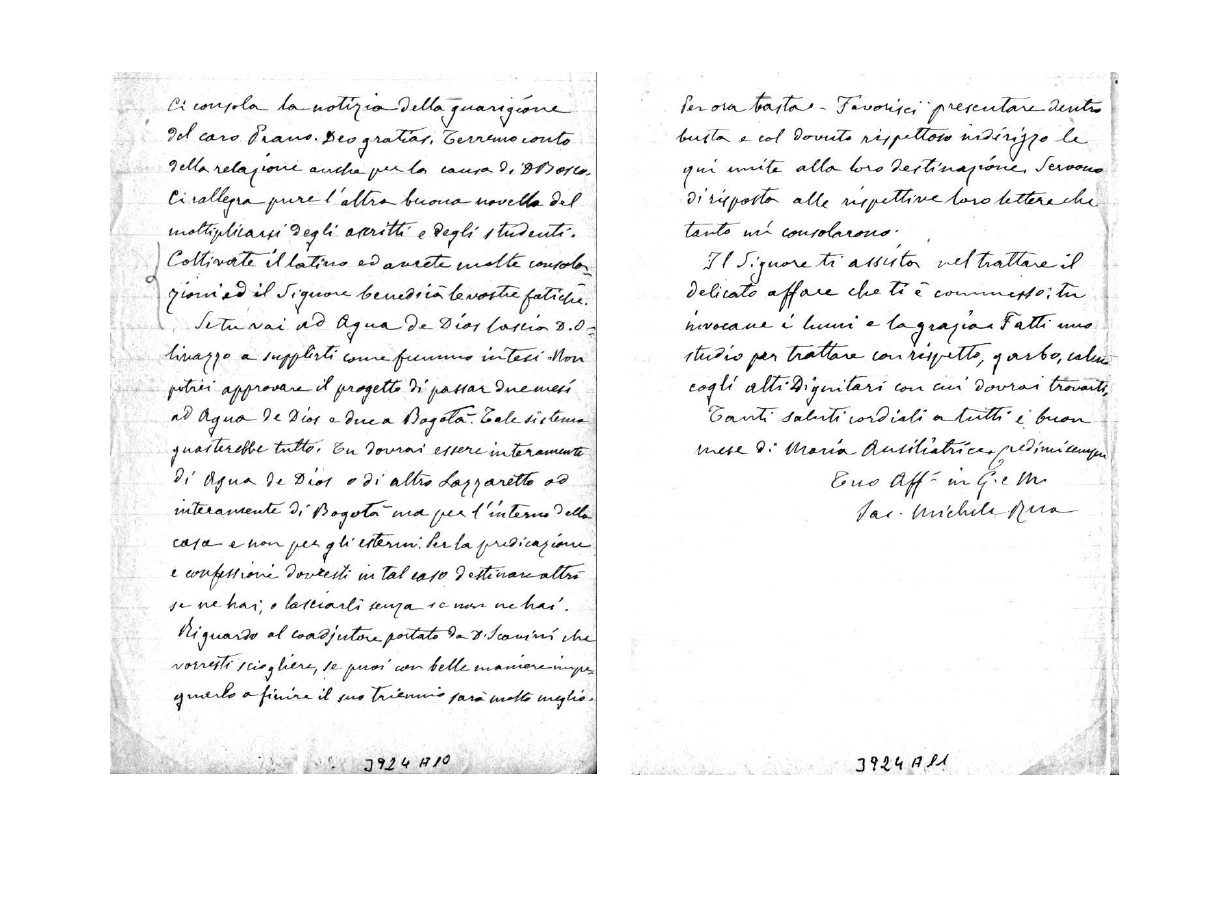 Ci consola la notizia della guarigione
del caro Prano. Deo gratias. Terremo conto
della relazione anche per la causa di D. Bosco.
Ci rallegra pure l'altra buona novella del
moltiplicarsi degli ascritti e degli studenti.
Coltivate il latino ed avrete molte consola-
zioni ed il Signore benedirà le vostre fatiche.
Se tu vai ad Agua de Dios lascia D. O-
livazzo a supplirti come fummo intesi. Non
potrei approvare il progetto di passar due mesi
ad Agua de Dios e due a Bogotà. Tale sistema
guasterebbe tutto. Tu dovrai essere interamente
di Agua de Dios o di altro Lazzaretto od
interamente di Bogotà ma per l'interno della
casa e non per gli esterni. Per la predicazione
e confessioni dovresti in tal caso destinare altri
se ne hai, o lasciarli senza se non ne hai.
Riguardo al coadjutore portato da D. Scavini che
vorresti sciogliere, se puoi con belle maniere impe-
gnarlo a finire il suo triennio sarà molto meglio.
3924 A 10
Per ora basta. - Favorisci presentare dentro
busta e col dovuto rispettoso indirizzo le
qui unite alla loro destinazione. Servono
di risposta alle rispettive loro lettere che
tanto mi consolarono.
Il Signore ti assista nel trattare il
delicato affare che ti è commesso; tu
invocane i lumi e la grazia. Fatti uno
studio per trattare con rispetto, garbo, calma
cogli alti Dignitari con cui dovrai trovarti.
Tanti saluti cordiali a tutti e buon
mese di Maria Ausiliatrice e credimi sempre
Tuo Aff.º in G. e M.
Sac. Michele Rua
3924 A 11